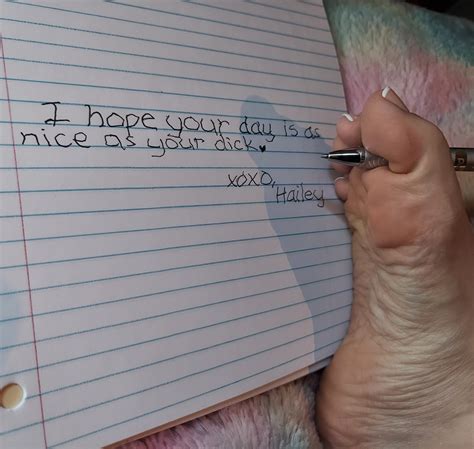 I hope your day is as
nice as your dick♥
xoxo,
Hailey